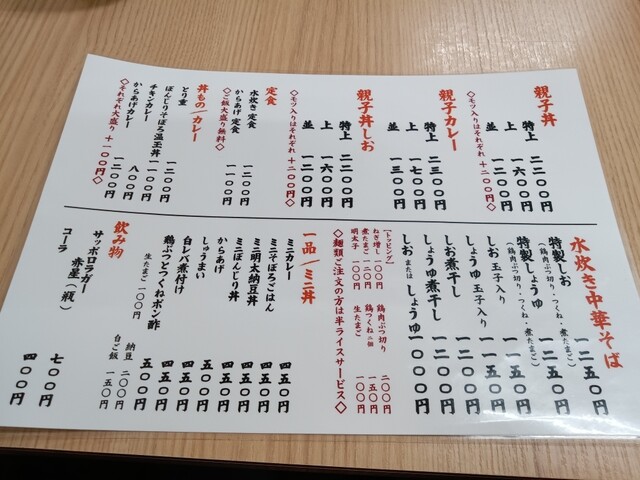 親子丼
特上 二二〇〇円
上 一六〇〇円
並 一二〇〇円
◇モツ入りはそれぞれ+二〇〇円◇
親子カレー
特上 二三〇〇円
上 一七〇〇円
並 一三〇〇円
親子丼しお
特上 二二〇〇円
上 一六〇〇円
並 一二〇〇円
◇モツ入りはそれぞれ+二〇〇円◇
定食
水炊き定食 一二〇〇円
からあげ定食 一一〇〇円
◇ご飯大盛り無料◇
丼もの/カレー
とり重 一二〇〇円
ぼんじりそぼろ温玉丼 一一〇〇円
チキンカレー 八〇〇円
からあげカレー 一二〇〇円
◇それぞれ大盛り+一〇〇円◇
水炊き中華そば
特製しお 一二五〇円
(鶏肉ぶつ切り・つくね・煮たまご)
特製しょうゆ 一二五〇円
(鶏肉ぶつ切り・つくね・煮たまご)
しお玉子入り 一一五〇円
しょうゆ玉子入り 一一五〇円
しお煮干し 一一〇〇円
しょうゆ煮干し 一一〇〇円
しお または しょうゆ 一〇〇〇円
「トッピング」
ねぎ増し 一〇〇円 鶏肉ぶつ切り 二〇〇円
煮たまご 一二〇円 鶏つくね二個 一五〇円
明太子 一五〇円 生たまご 一〇〇円
◇麺類ご注文の方は半ライスサービス◇
一品/ミニ丼
ミニカレー 四五〇円
ミニそぼろごはん 四五〇円
ミニ明太納豆丼 四五〇円
ミニぼんじり丼 四五〇円
からあげ 四五〇円
しゅうまい 四五〇円
白レバ煮付け 五五〇円
鶏ぶつとつくねポン酢 五五〇円
生たまご 一〇〇円 納豆 二〇〇円
白ご飯 一五〇円
飲み物
サッポロラガー赤星(瓶) 七〇〇円
コーラ 四〇〇円